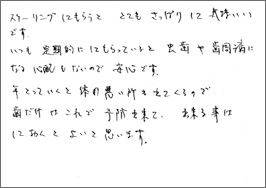 スケーリングしてもらうと とてもさっぱりして気持いい
です。
いつも定期的にしてもらっていると 虫歯や歯周病に
なる心配もないので 安心です。
年とっていくと体の悪い所も出てくるので
歯だけはこれで予防出来て、出来る事は
して功くとよいと思います。